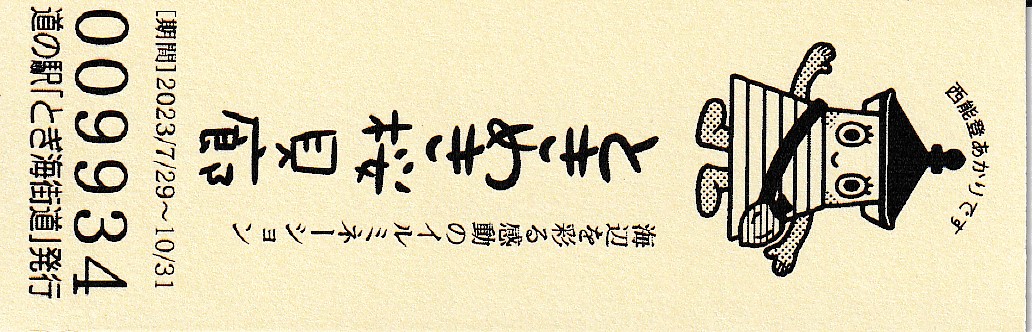 西能登あかりです
ときめき桜貝廊
海辺を彩る感動のイルミネーション
[期間]2023/7/29~10/31
009934
道の駅「とぎ海街道」発行